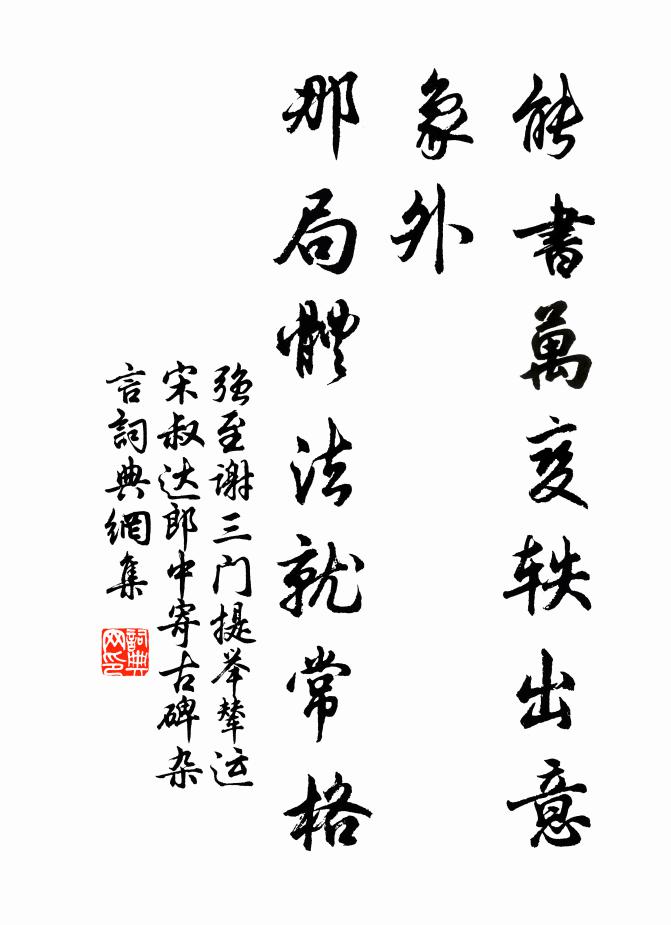 能書萬变轶出意
象外
那局體法就常格
强至谢三门提举辇运
宋叔达郎中寄古碑杂
言詞典網集
詞典网印